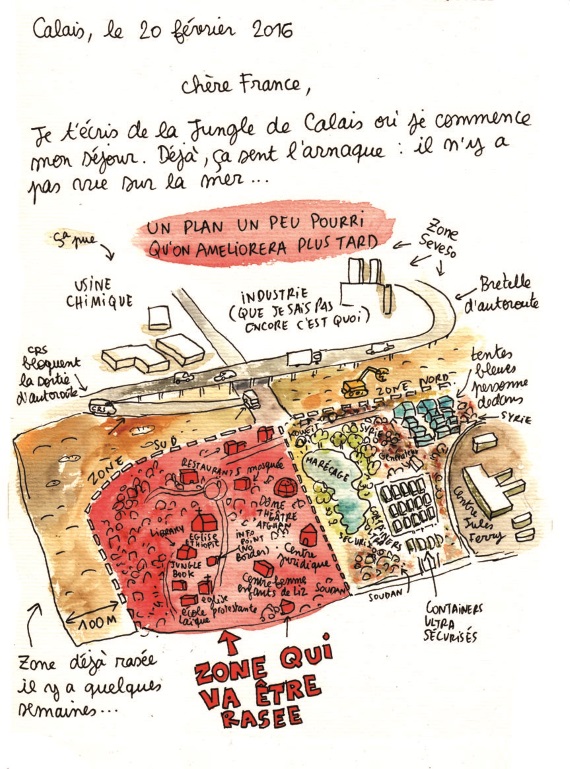 Calais, le 20 février 2016
chère France,
Je t'écris de la Jungle de Calais où je commence
mon séjour. Déjà, ça sent l'arnaque : il n'y a
pas vue sur la mer...
UN PLAN UN PEU POURRI
QU'ON AMELIORERA PLUS TARD
Zone
Seveso
ça pue
USINE
CHIMIQUE
INDUSTRIE
(QUE JE SAIS PAS
ENCORE C'EST QUOI)
Bretelle
d'autoroute
CRS
bloquent
la sortie
d'autoroute
CRS
tentes
bleues
personne
dedans
ZONE NORD
SYRIE
ZONE SUD
KOWEIT
SYRIE
MARÉCAGE
RESTAURANTS
mosquée
DÔME
THÉÂTRE
AFGHAN
LIBRARY
EGLISE
ETHIOPIE
INFO
POINT
(NO
Borders)
Centre
juridique
JUNGLE
BOOK
Centre femme
enfants de Liz
EGLISE
protestante
école
laïque
SOUDAN
Centre
Jules
Ferry
SOUDAN
CONTAINERS
ULTRA
SÉCURISÉS
100M
Zone déjà rasée
il y a quelques
semaines...
ZONE QUI
VA ÊTRE
RASEE